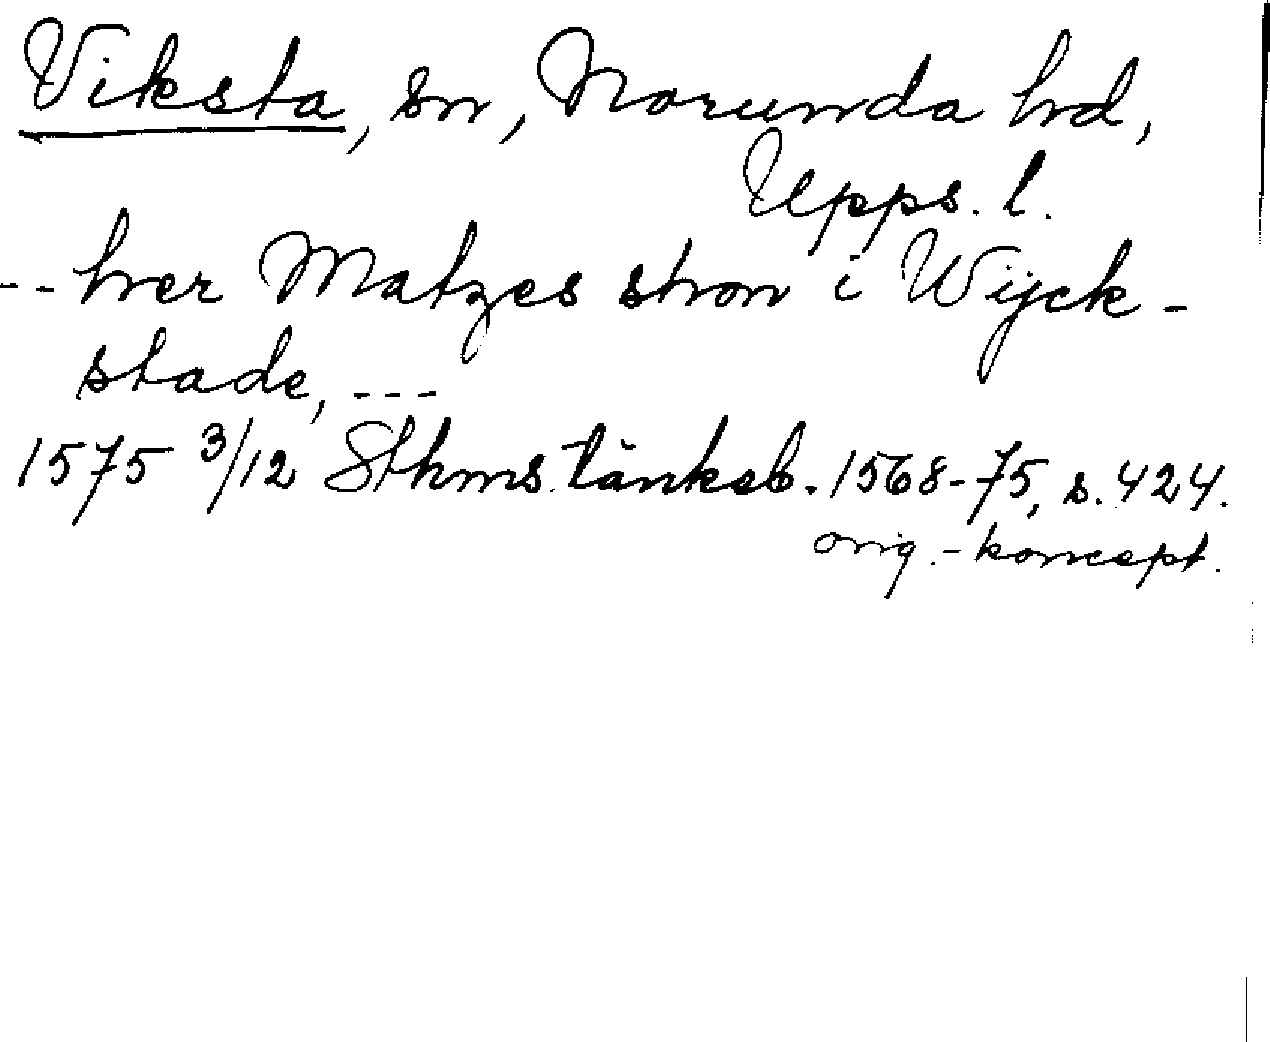 Viksta, sn, Norunda hd,
Upps. l.
-- her Matzes shon i Wijck-
stade, ---
1575 3/12 Sthms tänkeb. 1568-75, s. 424.
orig.-koncept.